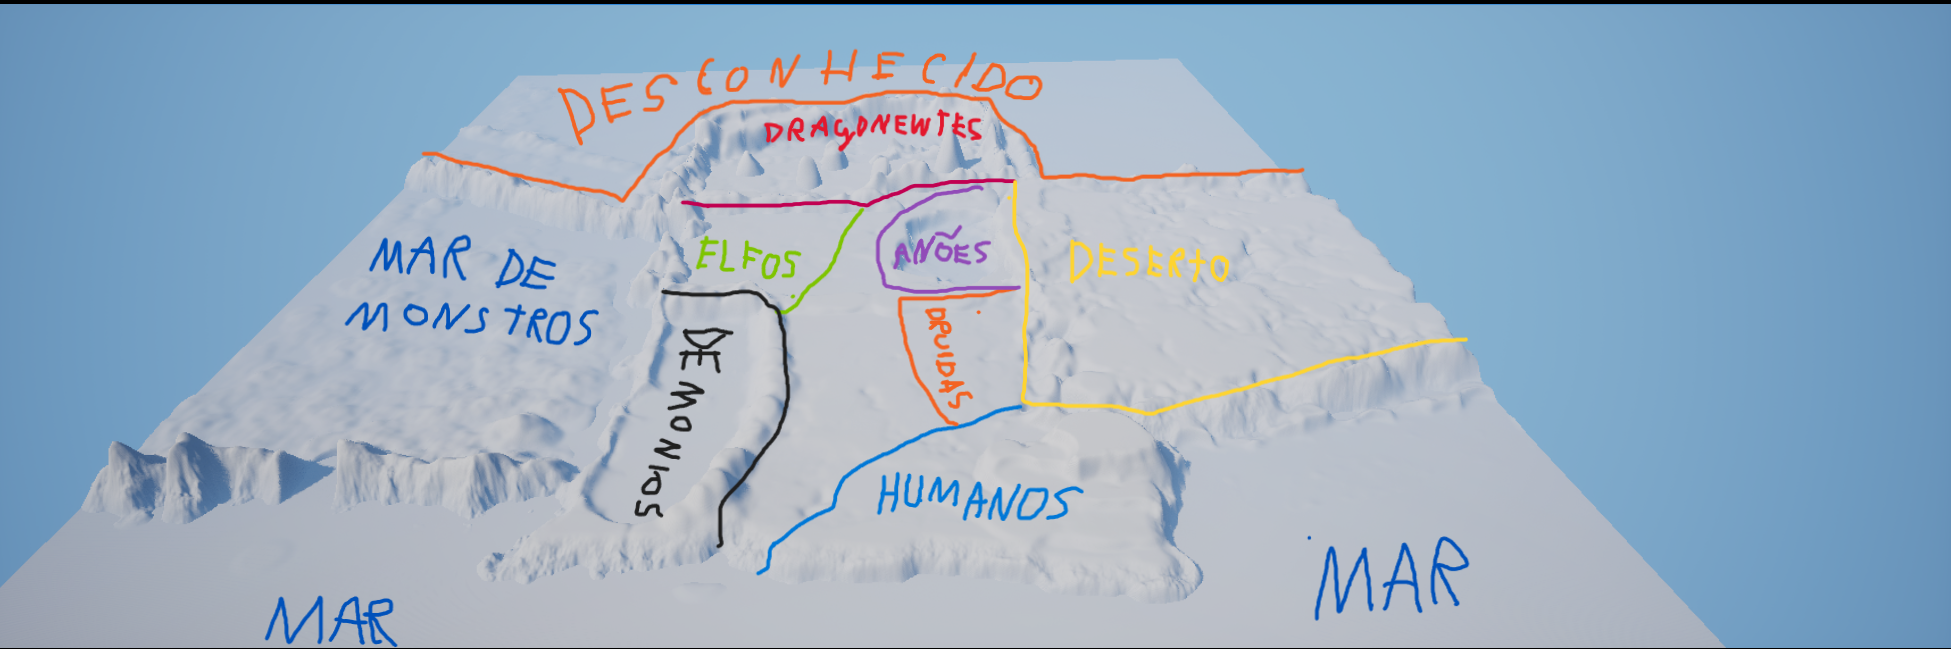 DESCONHECIDO
DRAGONEWTES
MAR DE
MONSTROS
ELFOS
ANÕES
DESERTO
DEMONIOS
DRUIDAS
HUMANOS
MAR
MAR